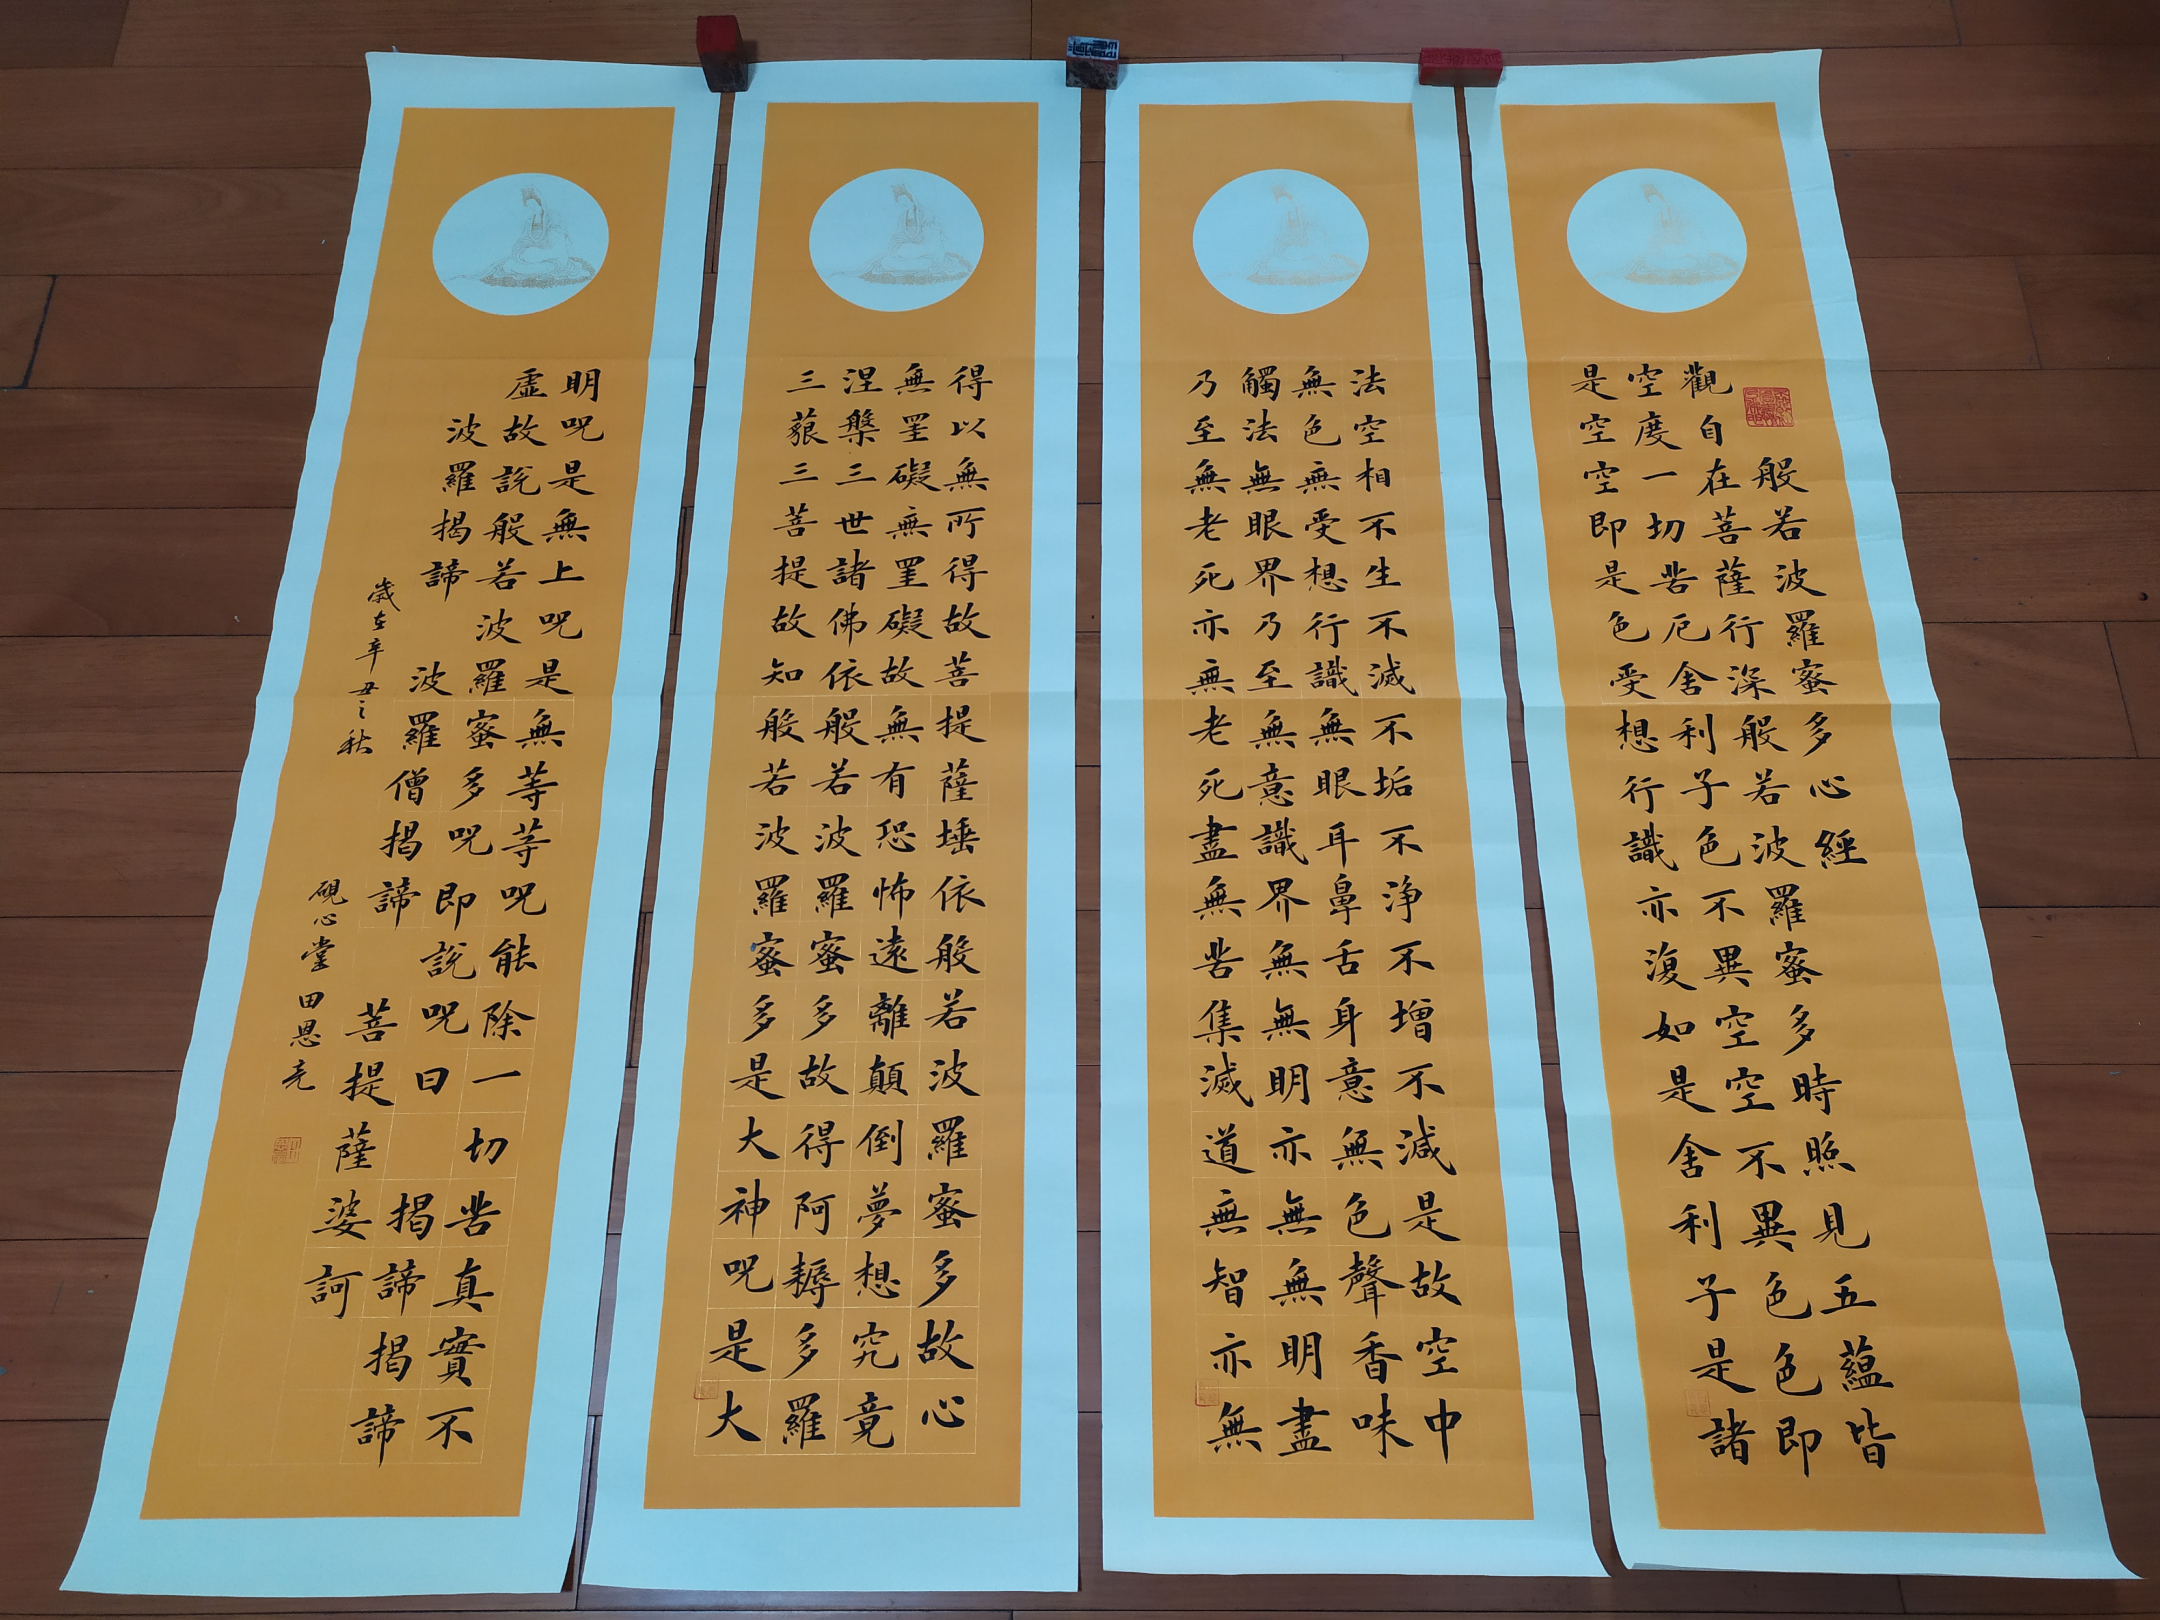 般若波羅蜜多心經
觀自在菩薩行深般若波羅蜜多時照見五蘊皆
空度一切苦厄舍利子色不異空空不異色色即
是空空即是色受想行識亦復如是舍利子是諸
法空相不生不滅不垢不浄不增不減是故空中
無色無受想行識無眼耳鼻舌身意無色聲香味
觸法無眼界乃至無意識界無無明亦無無明盡
乃至無老死亦無老死盡無苦集滅道無智亦無
得以無所得故菩提薩埵依般若波羅蜜多故心
無罣礙無罣礙故無有恐怖遠離顛倒夢想究竟
涅槃三世諸佛依般若波羅蜜多故得阿耨多羅
三藐三菩提故知般若波羅蜜多是大神呪是大
明呪是無上呪是無等等呪能除一切苦真實不
虛故說般若波羅蜜多呪即說呪曰 揭諦揭諦
波羅揭諦 波羅僧揭諦 菩提薩婆訶
歲在辛丑之秋 硯心堂田恩亮